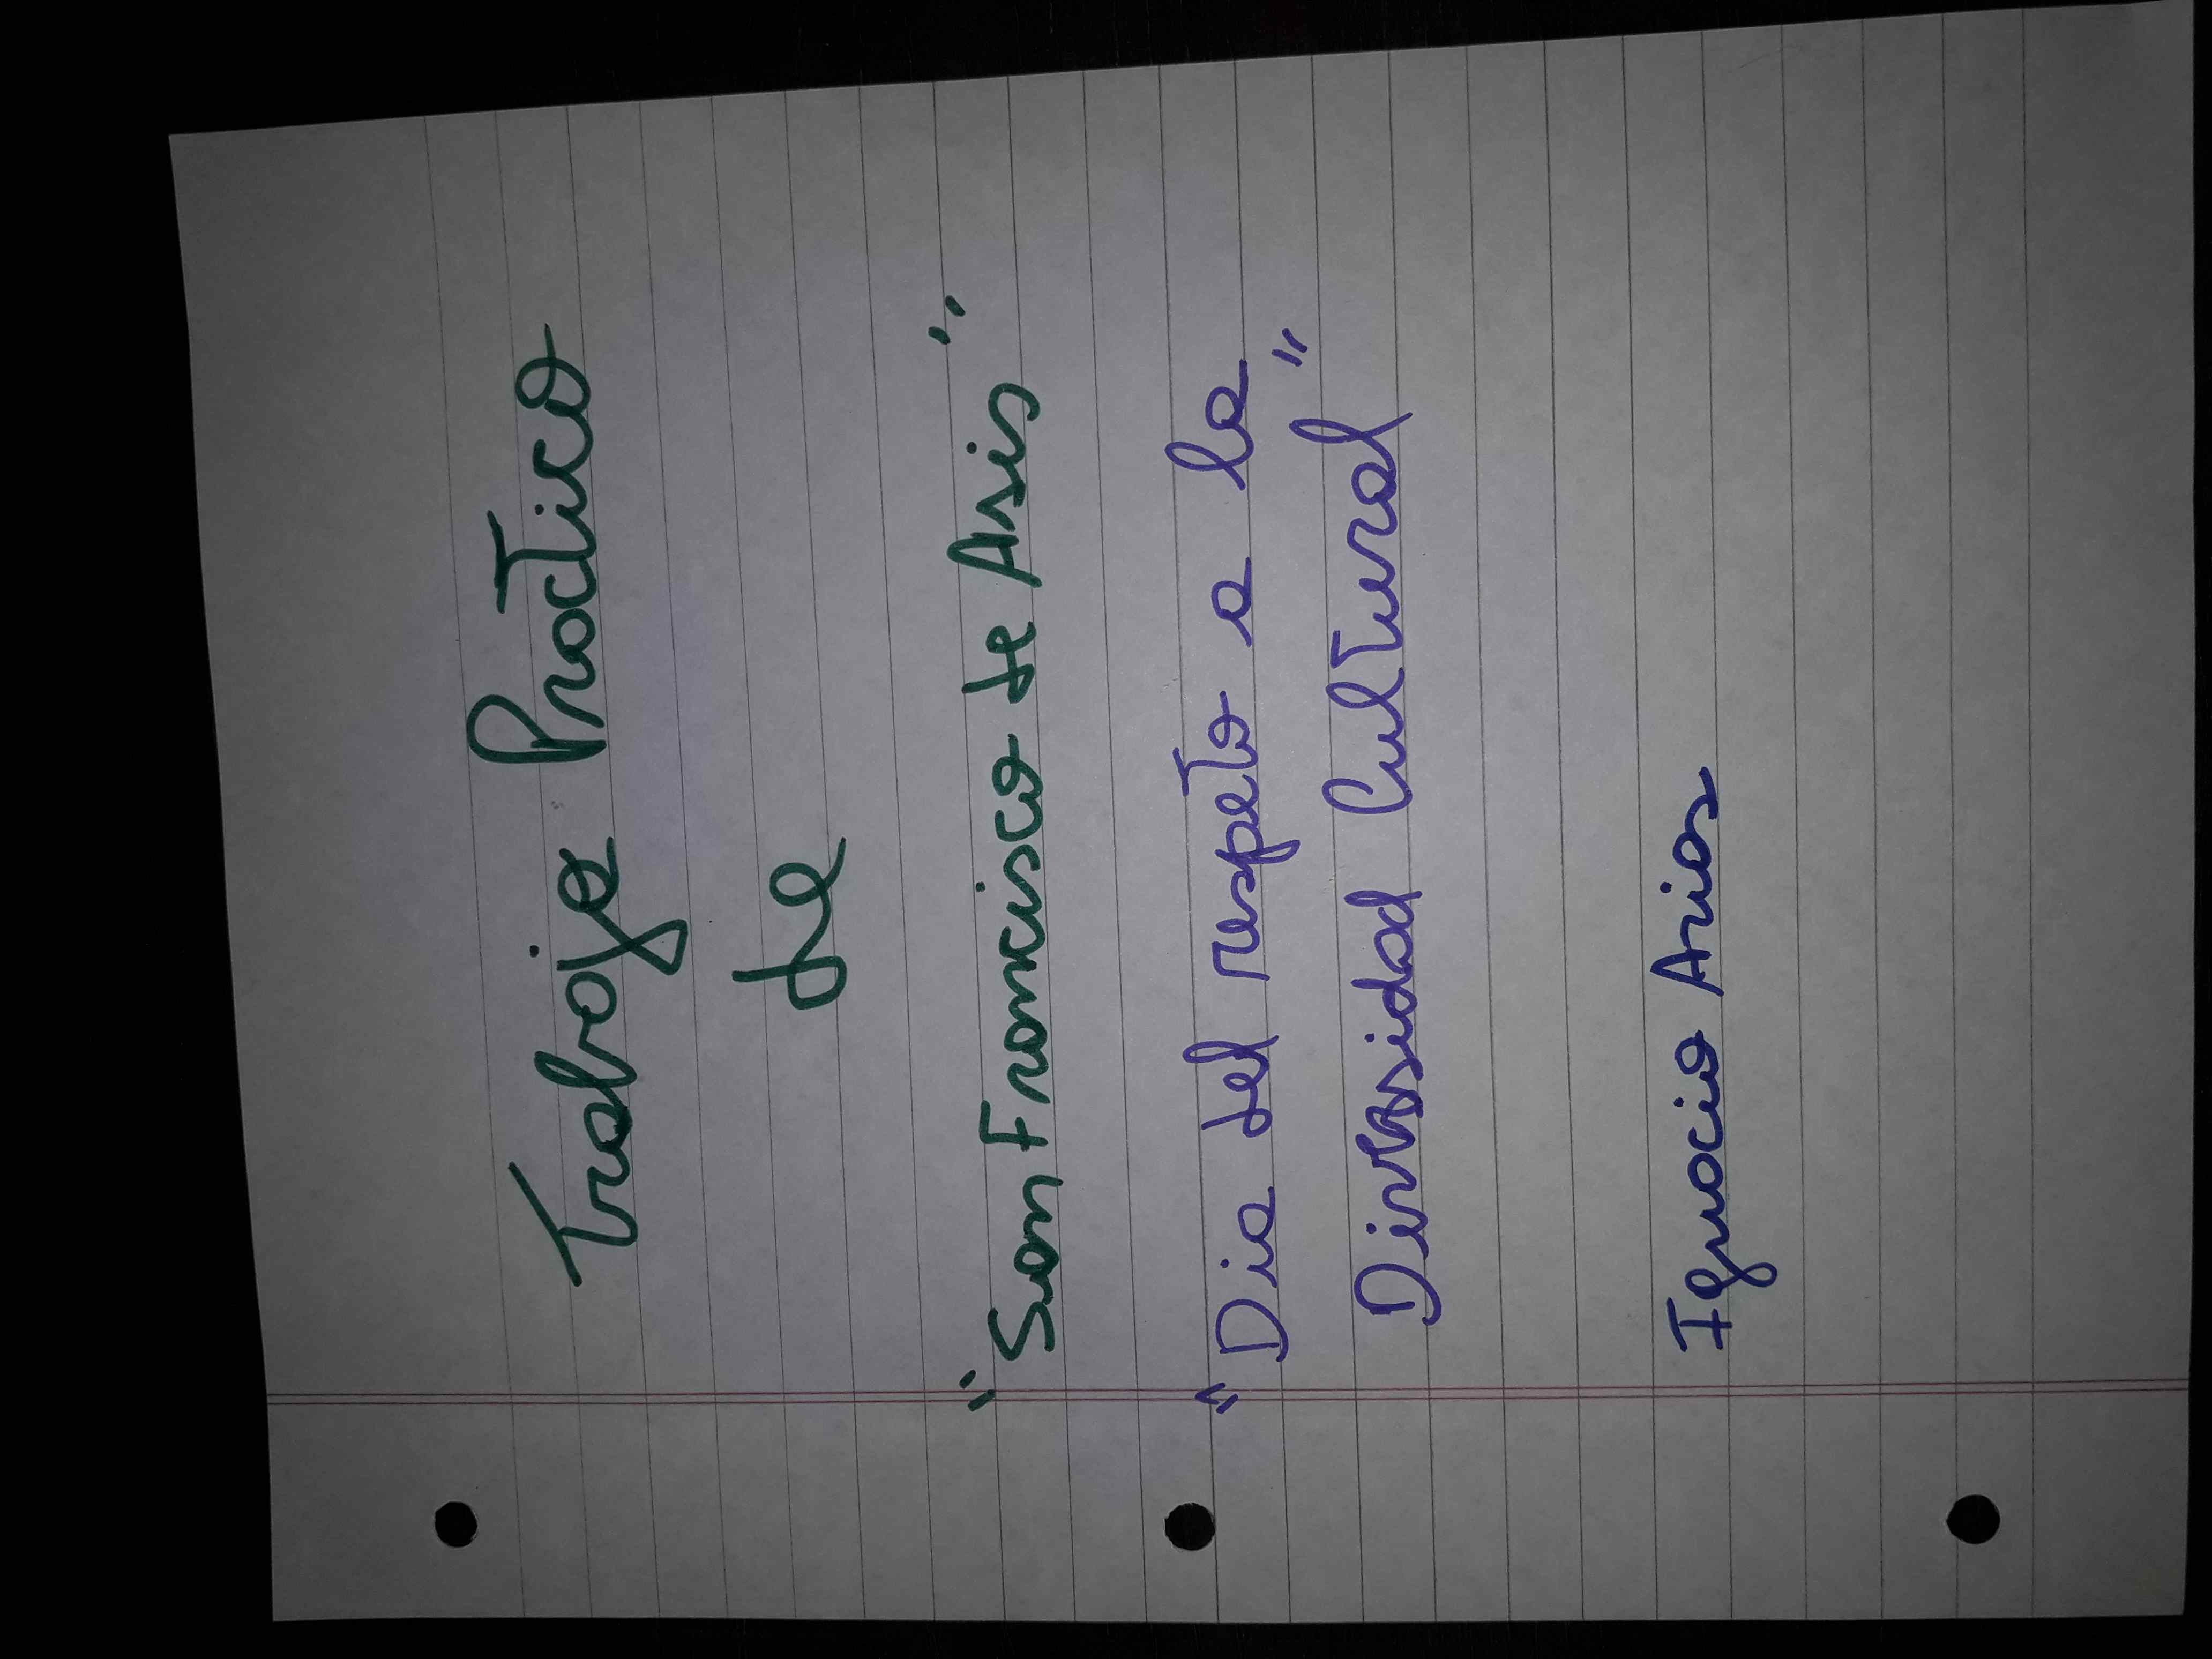 Trabajo Practico
de
"San Francisco de Asis"
"Dia del respeto a la
Diversidad Cultural"
Ignacio Arias